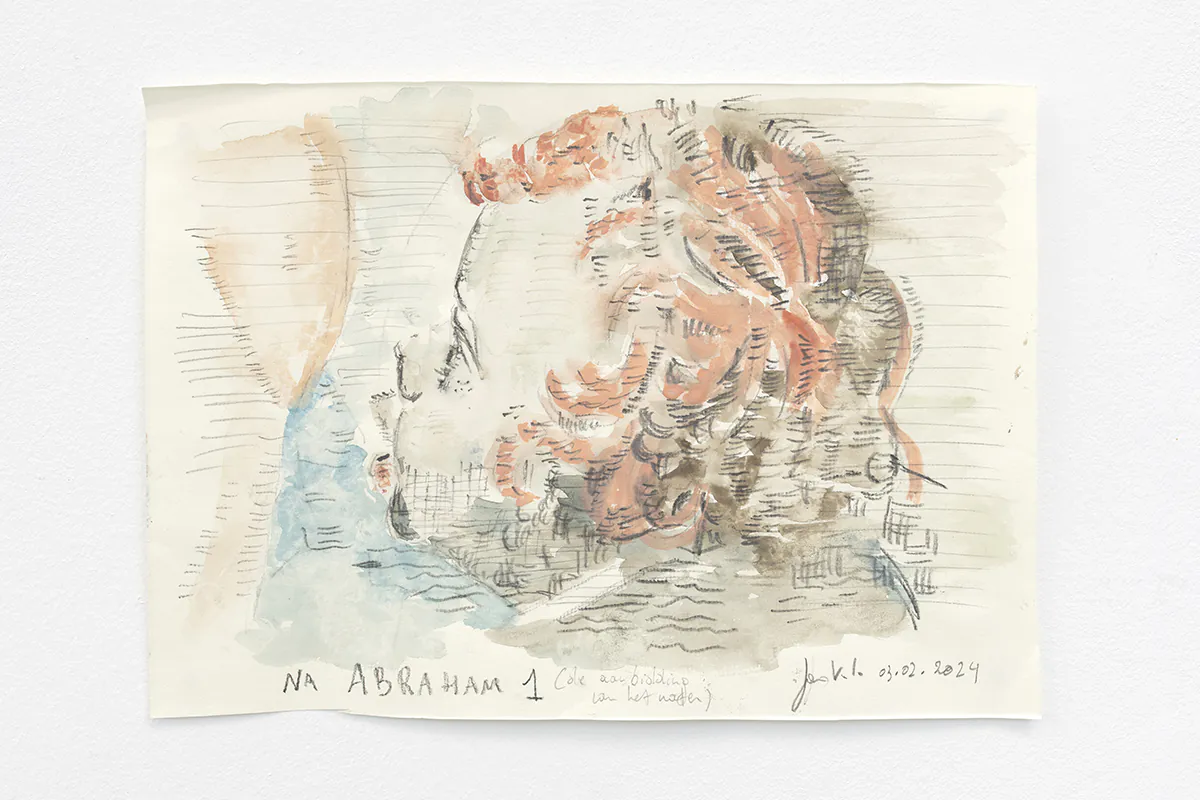 NA ABRAHAM 1 (de aanbidding
van het water)
03.02.2024